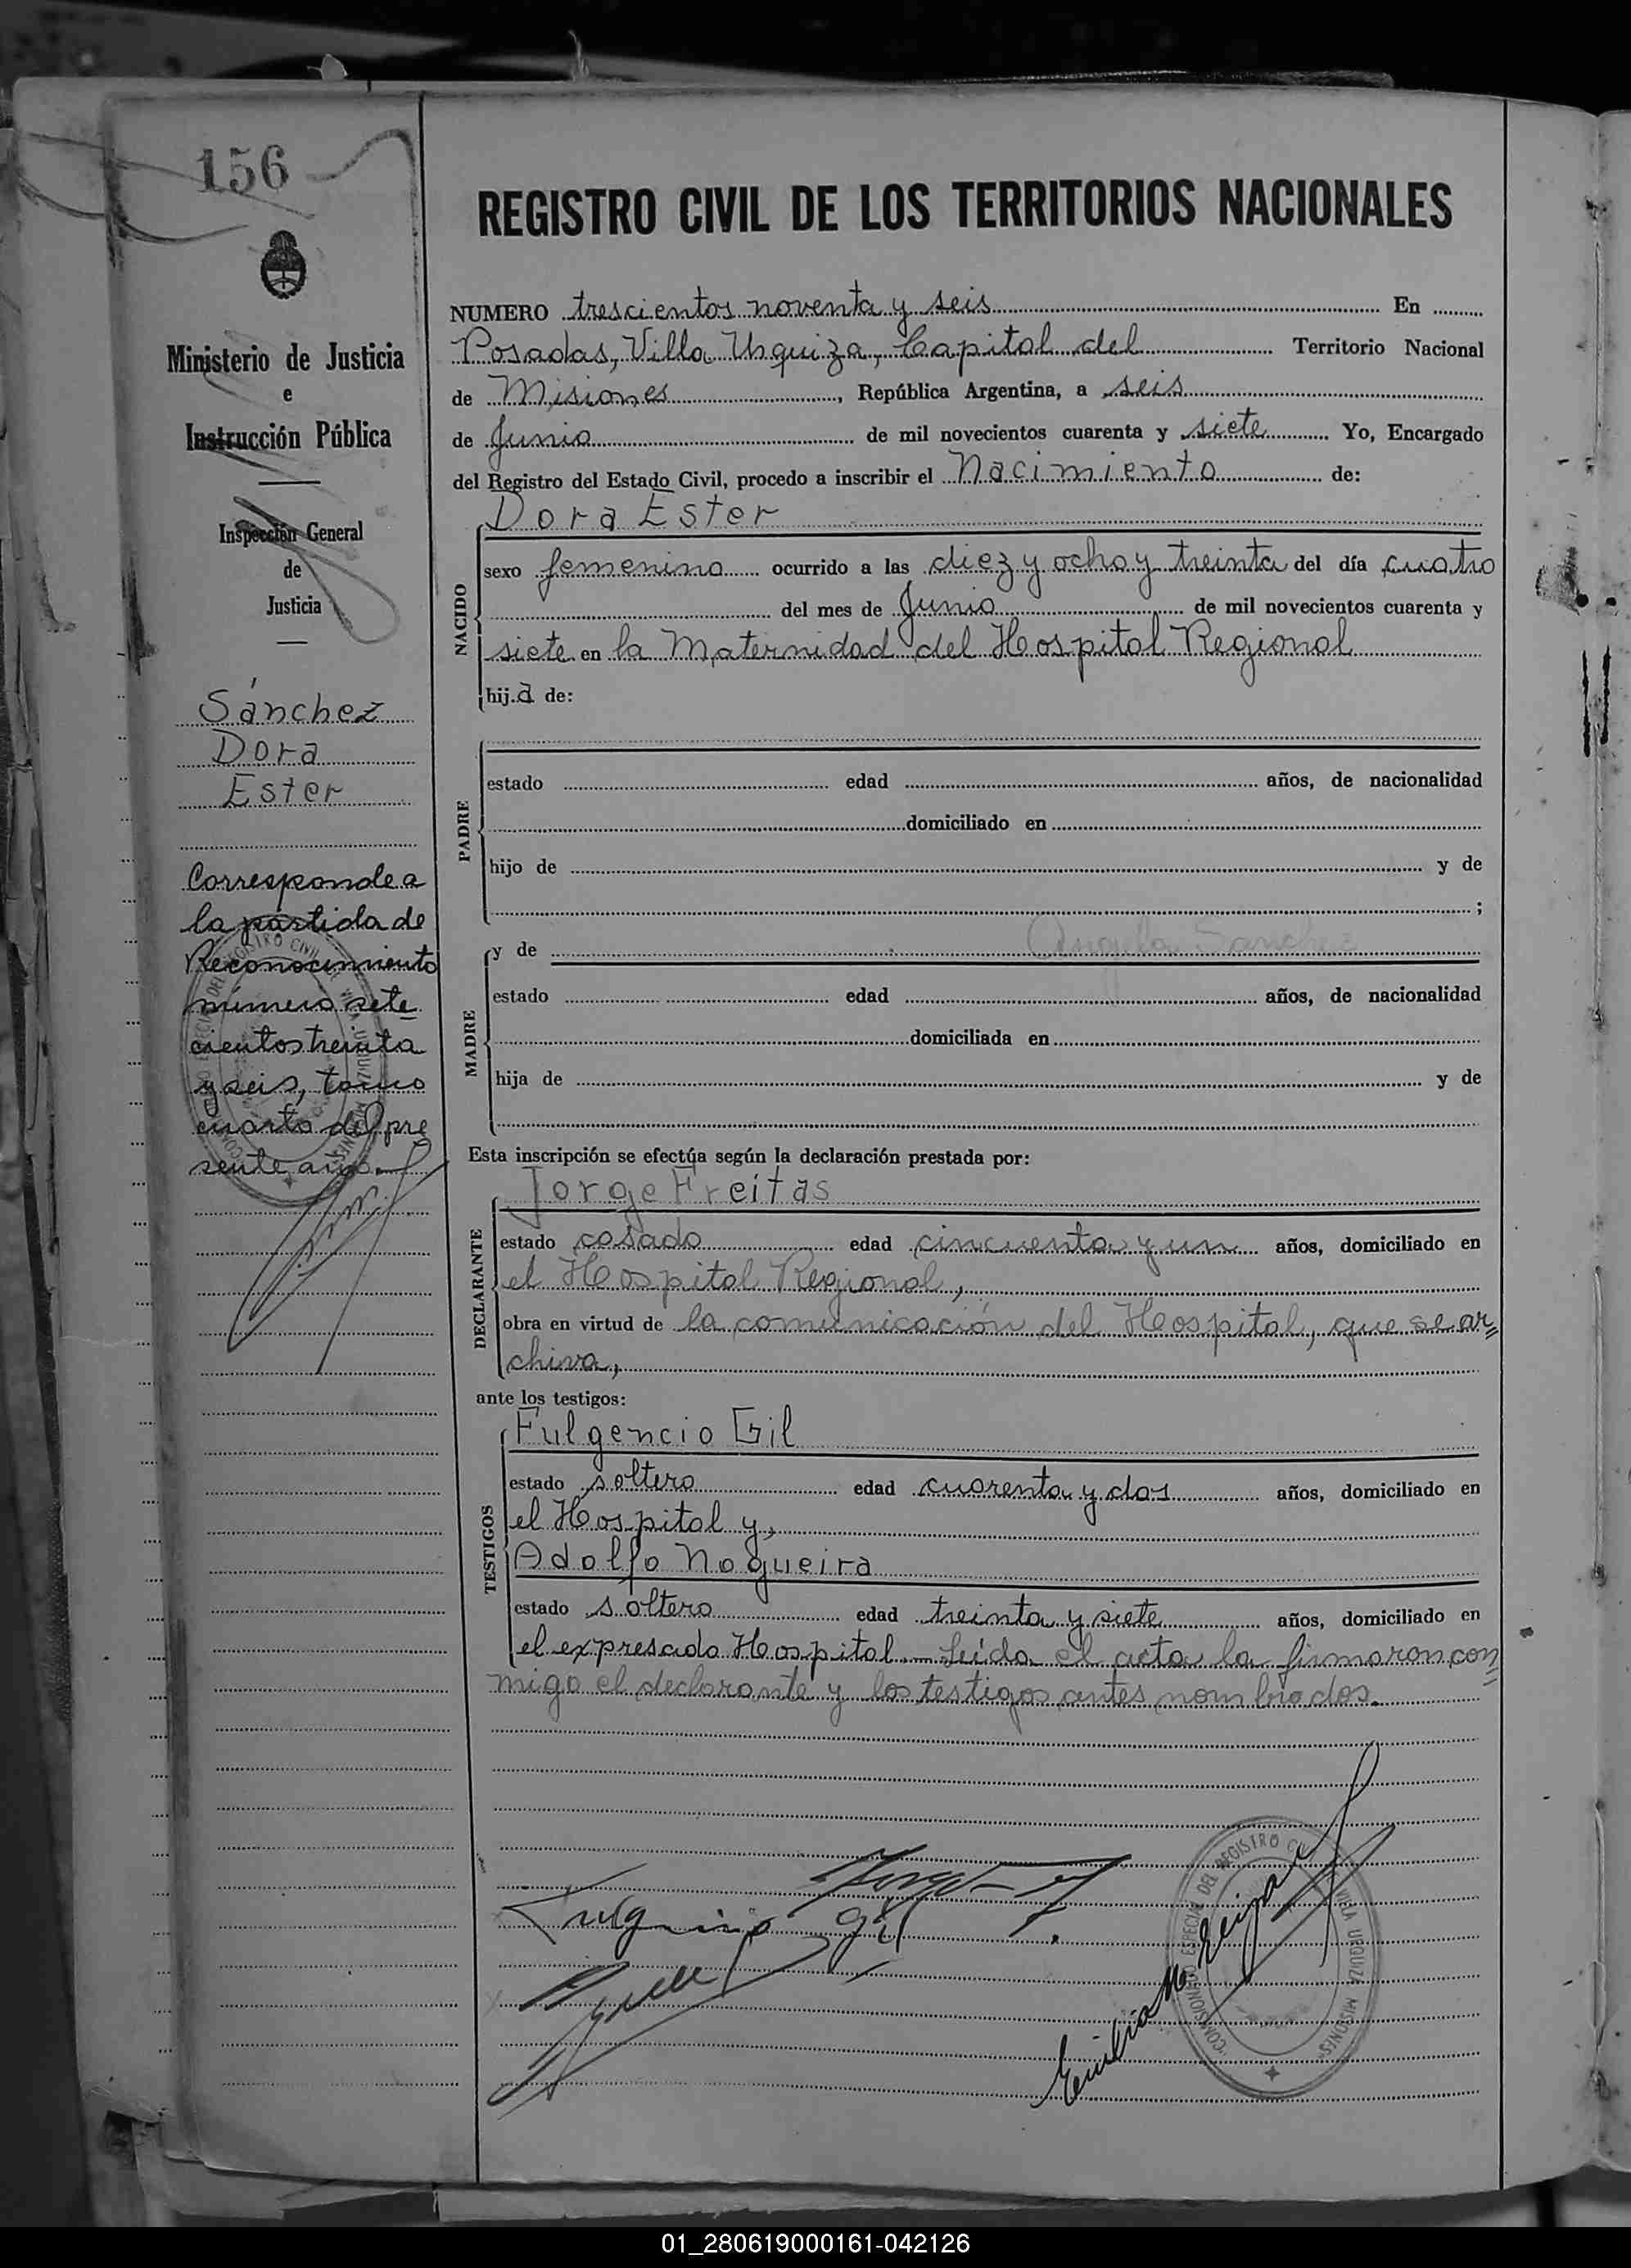 156
REGISTRO CIVIL DE LOS TERRITORIOS NACIONALES
Ministerio de Justicia
e
Instrucción Pública
Inspección General
de
Justicia
Sánchez
Dora
Ester
Corresponde a
la partida de
Reconocimiento
número sete
cientos treinta
y seis, tomo
cuarto del pre
sente año.
NUMERO trescientos noventa y seis En
Posadas, Villa Urquiza, Capital del Territorio Nacional
de Misiones, República Argentina, a seis
de Junio de mil novecientos cuarenta y siete Yo, Encargado
del Registro del Estado Civil, procedo a inscribir el Nacimiento de:
Dora Ester
NACIDO
sexo femenino ocurrido a las diez y ocho y treinta del día cuatro
del mes de Junio de mil novecientos cuarenta y
siete en la Maternidad del Hospital Regional
hija de:
PADRE
estado edad años, de nacionalidad
domiciliado en
hijo de y de
;
MADRE
y de Angela Sanchez
estado edad años, de nacionalidad
domiciliada en
hija de y de
Esta inscripción se efectúa según la declaración prestada por:
DECLARANTE
Jorge Freitas
estado casado edad cincuenta y un años, domiciliado en
el Hospital Regional,
obra en virtud de la comunicación del Hospital, que se ar
chiva,
ante los testigos:
TESTIGOS
Fulgencio Gil
estado soltero edad cuarenta y dos años, domiciliado en
el Hospital y,
Adolfo Nogueira
estado soltero edad treinta y siete años, domiciliado en
el expresado Hospital.— Leída el acta la firmaron con
migo el declarante y los testigos antes nombrados.
Fulgencio Gil
COMISIONADO ESPECIAL DEL REGISTRO CIVIL VILLA URQUIZA MISIONES
01_280619000161-042126